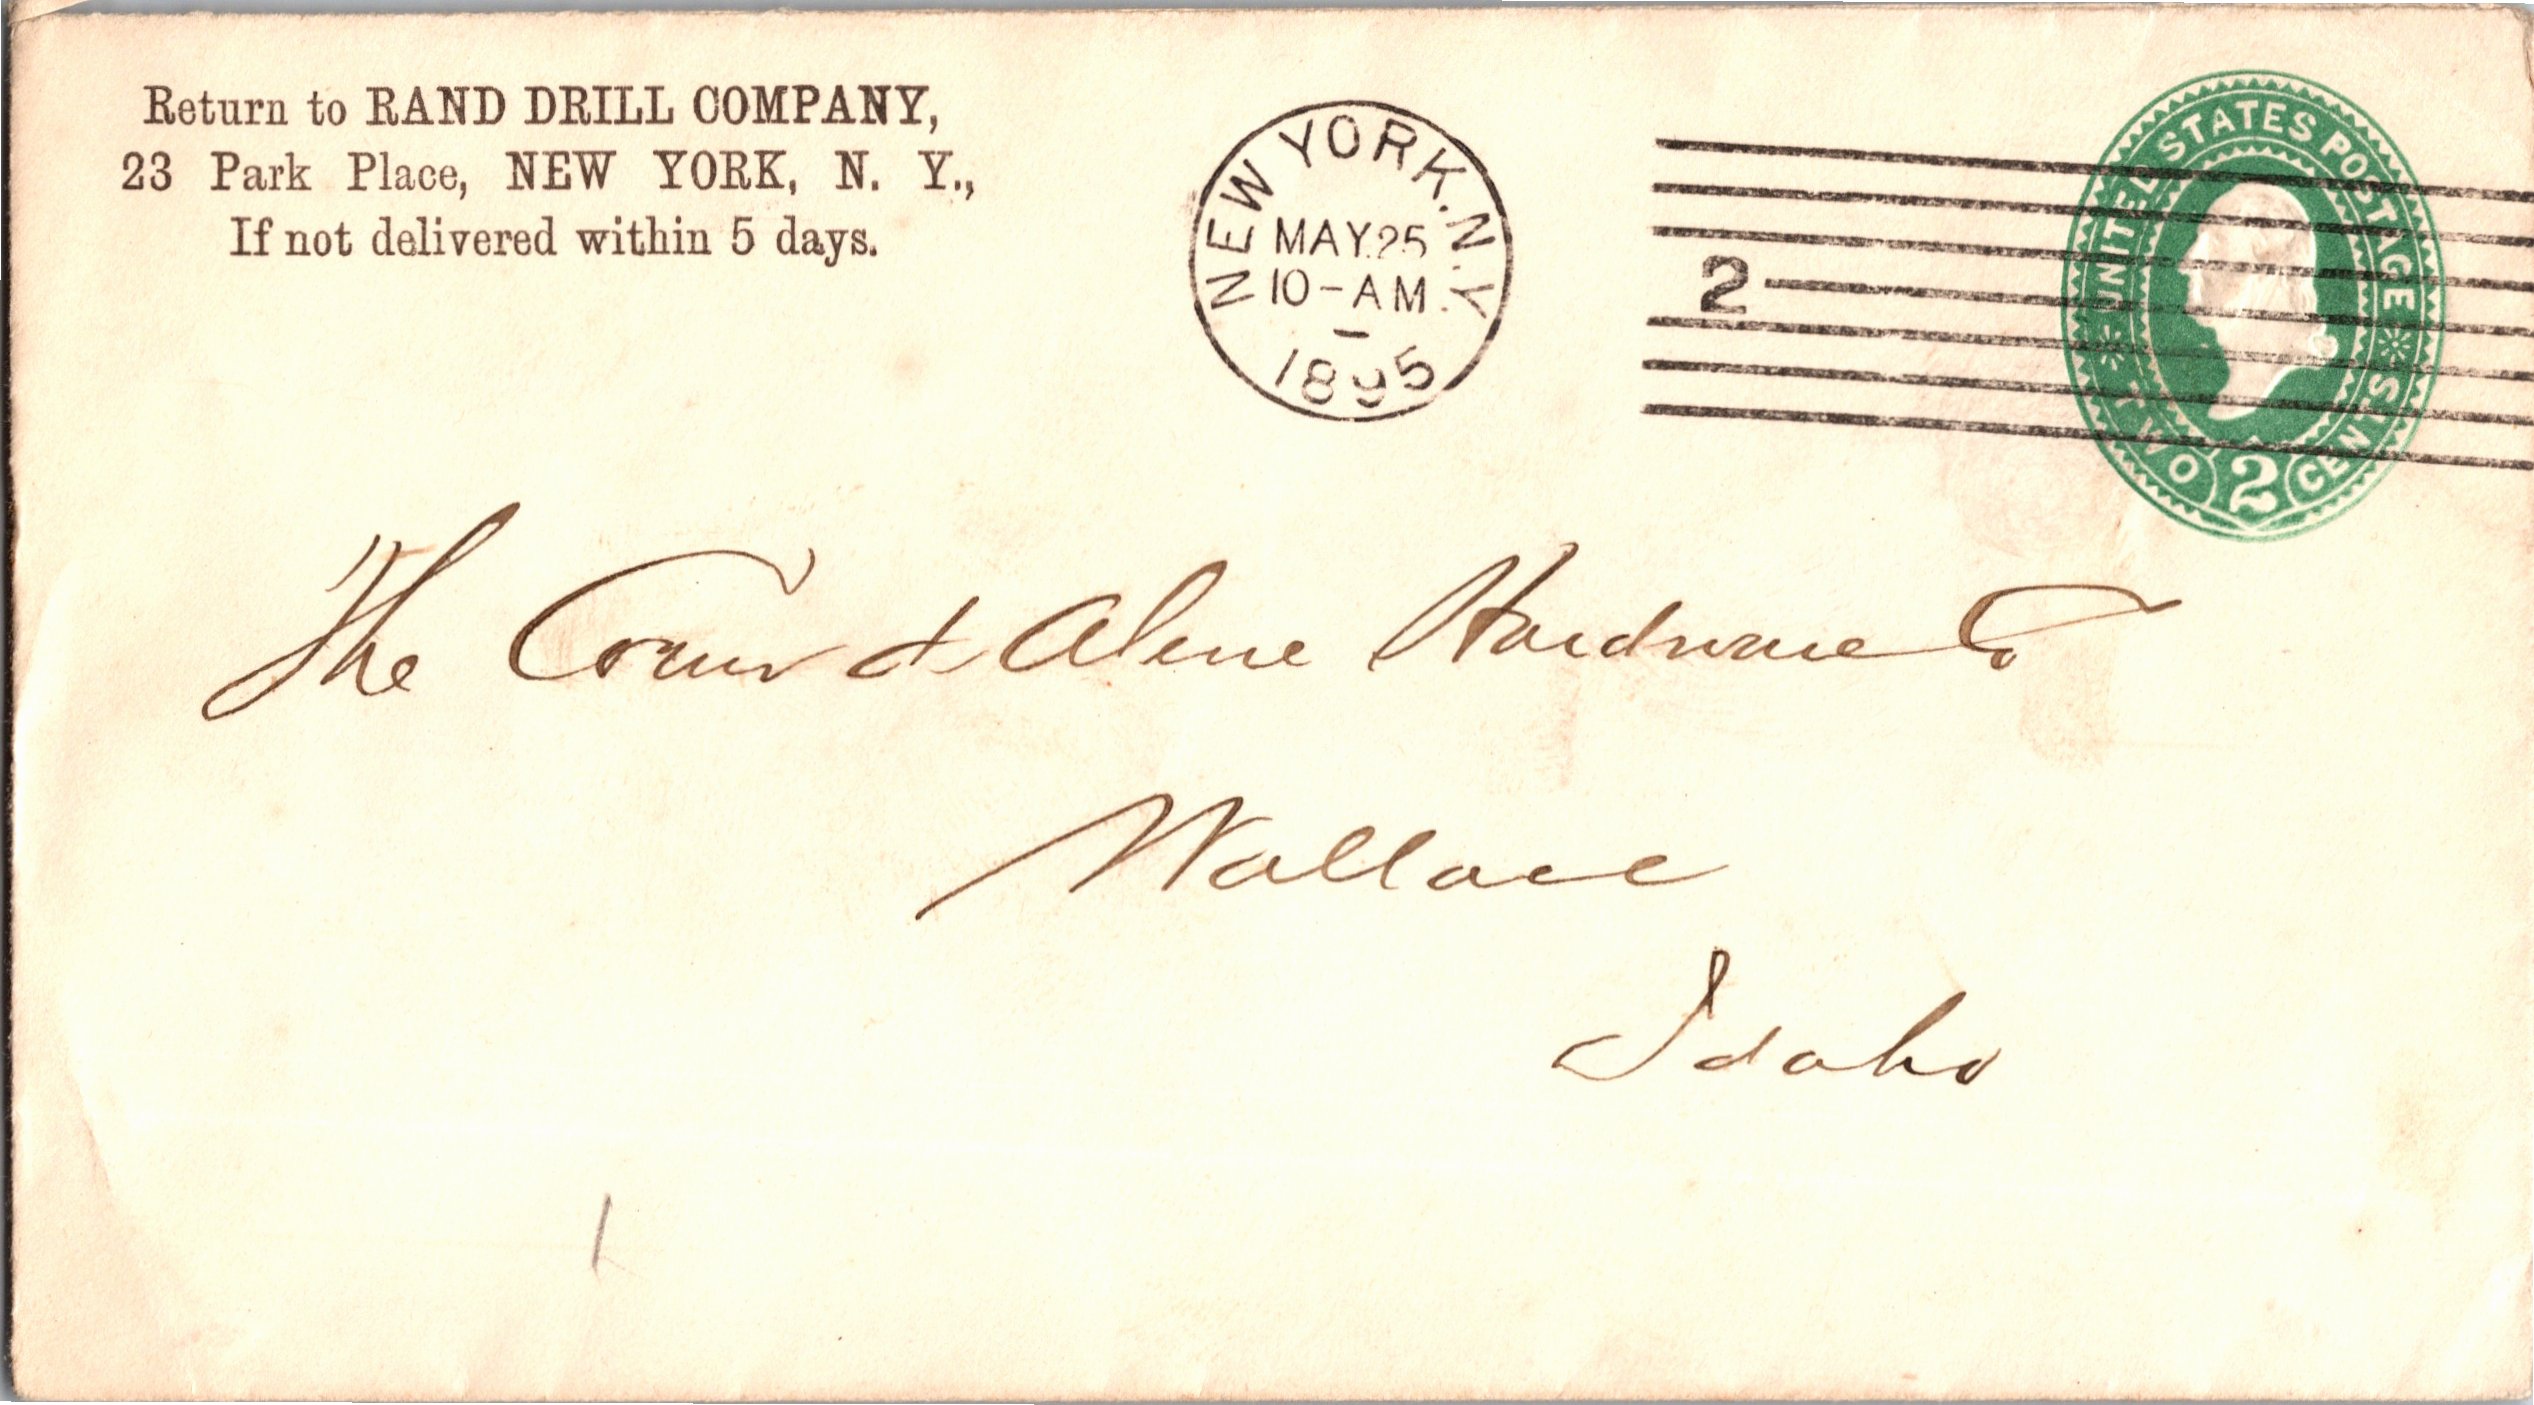 Return to RAND DRILL COMPANY,
23 Park Place, NEW YORK, N. Y.,
If not delivered within 5 days.
NEW YORK. N.Y.
MAY.25
10-AM.
1895
2
UNITED STATES POSTAGE
TWO 2 CENTS
The Coeur d Alene Hardware Co
Wallace
Idaho